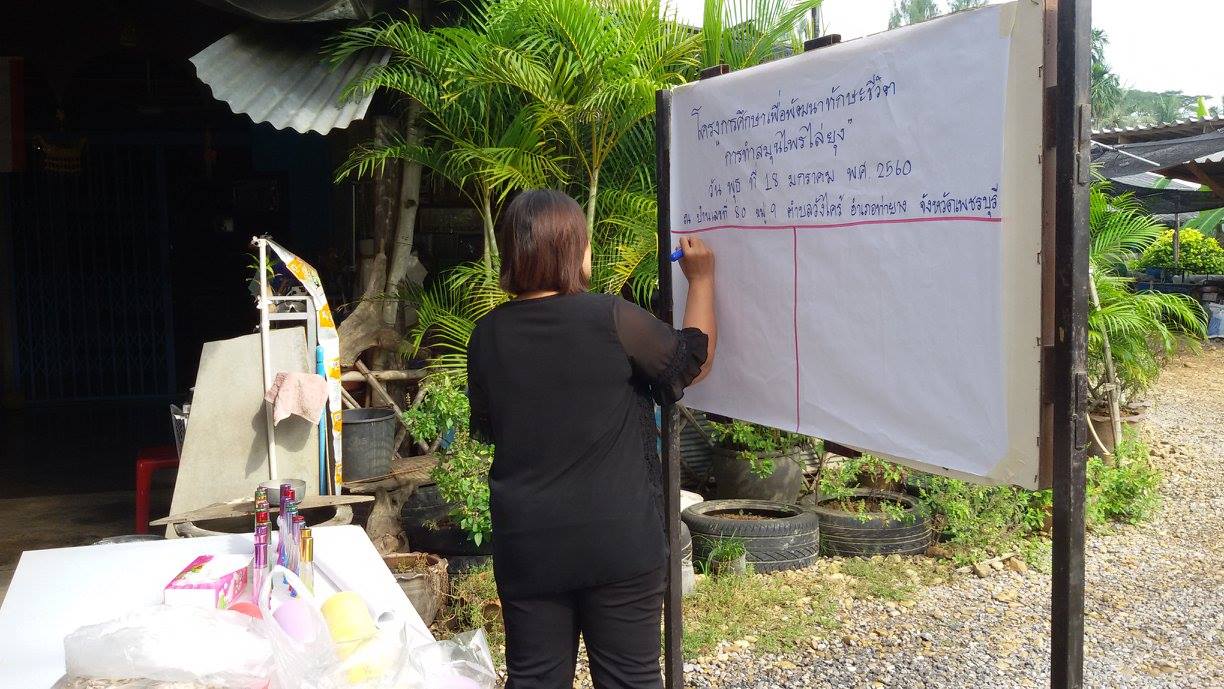 โครงการศึกษาเพื่อพัฒนาทักษะชีวิต
"การทำสมุนไพรไล่ยุง"
วัน พุธ ที่ 18 มกราคม พ.ศ. 2560
ณ บ้านเลขที่ 80 หมู่ 9 ตำบลวังไคร้ อำเภอท่ายาง จังหวัดเพชรบุรี